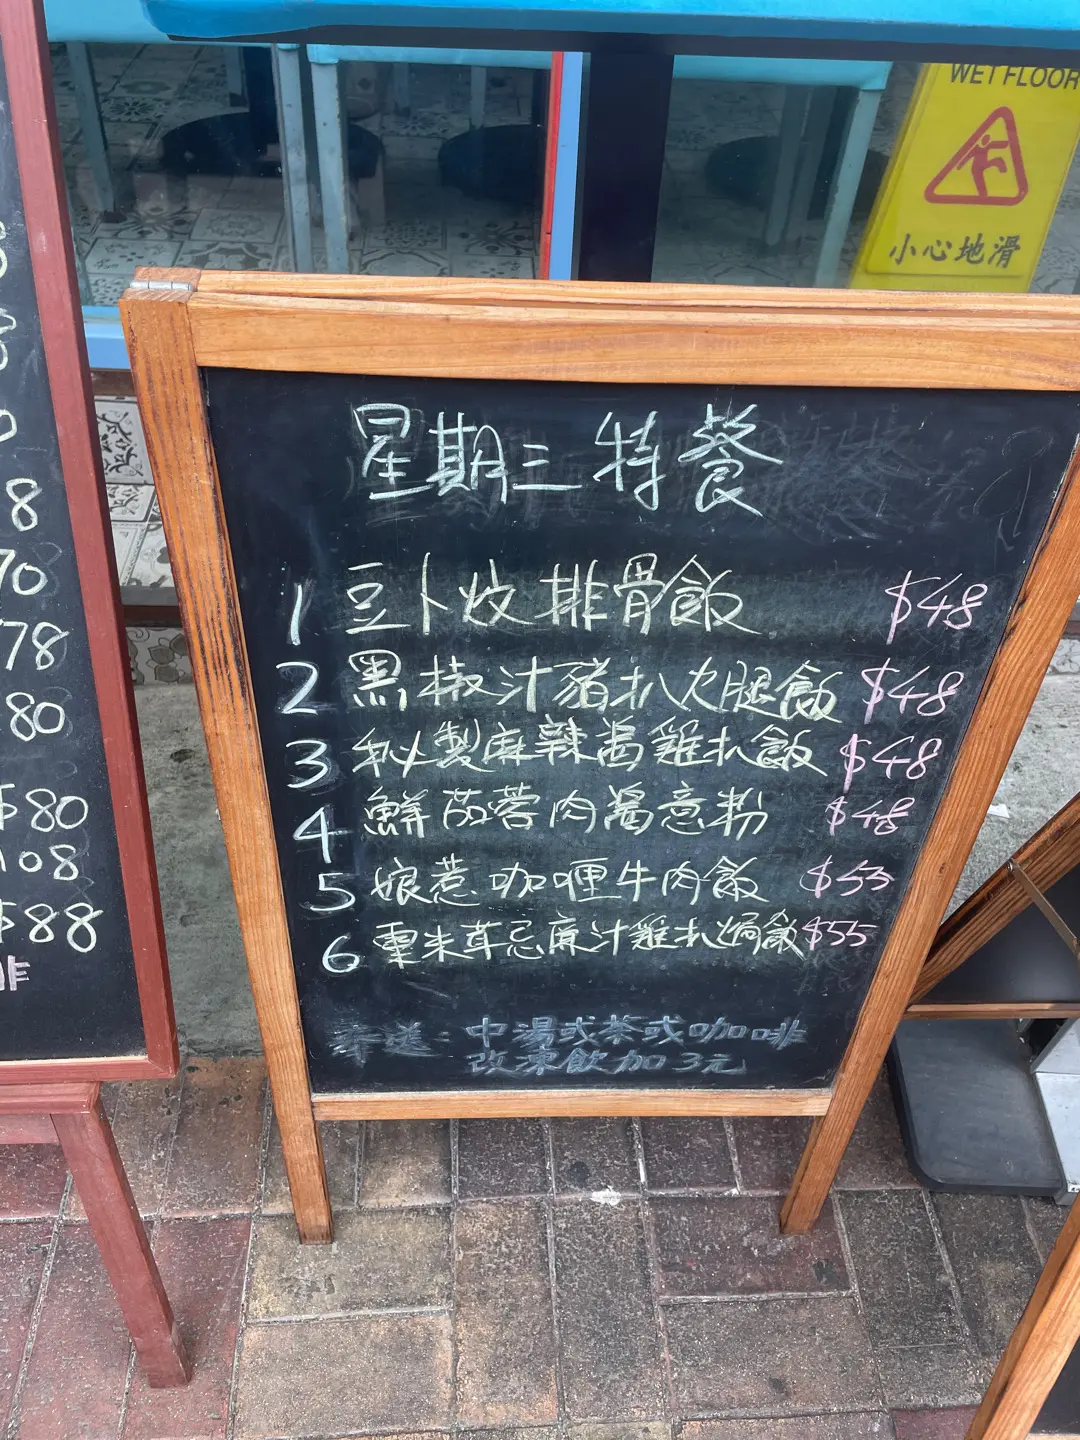 WET FLOOR
小心地滑
8
70
78
80
$80
108
$88
啡
星期三特餐
1 豆卜炆排骨飯 $48
2 黑椒汁豬扒火腿飯 $48
3 秘製麻辣醬雞扒飯 $48
4 鮮茄蓉肉醬意粉 $48
5 娘惹咖喱牛肉飯 $55
6 粟米茸忌廉汁雞扒焗飯 $55
奉送：中湯或茶或咖啡
改凍飲加3元